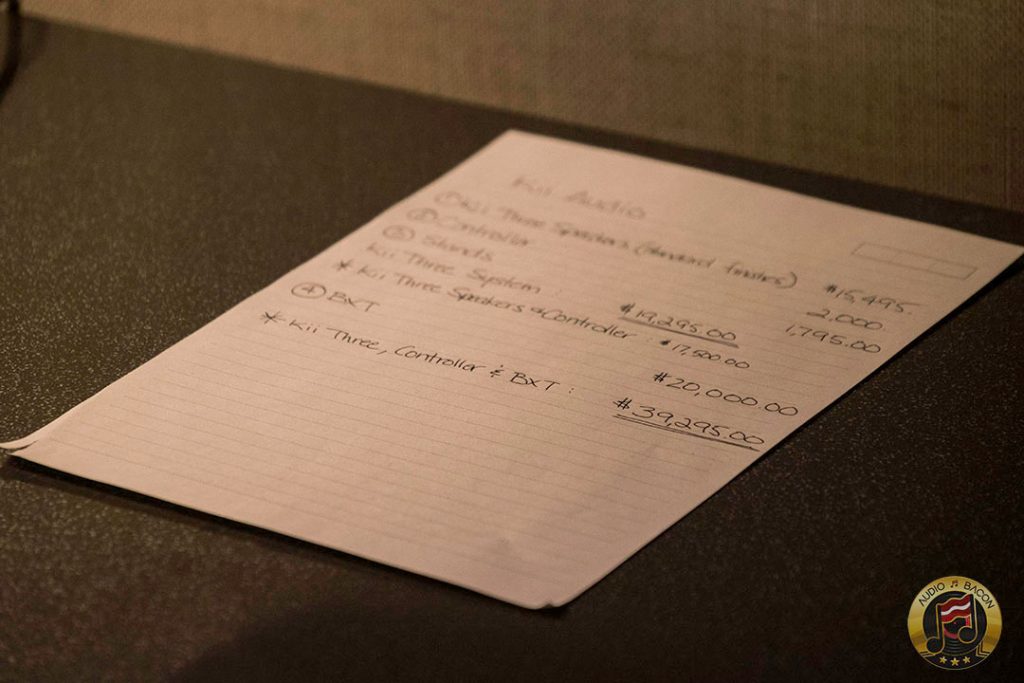 Kii Audio
① Kii Three Speakers (standard finishes) $15,495.
② Controller 2,000
③ Stands 1,795.00
Kii Three System: $19,295.00
* Kii Three Speakers & Controller $17,500.00
④ BXT $20,000.00
* Kii Three, Controller & BXT: $39,295.00
AUDIO BACON